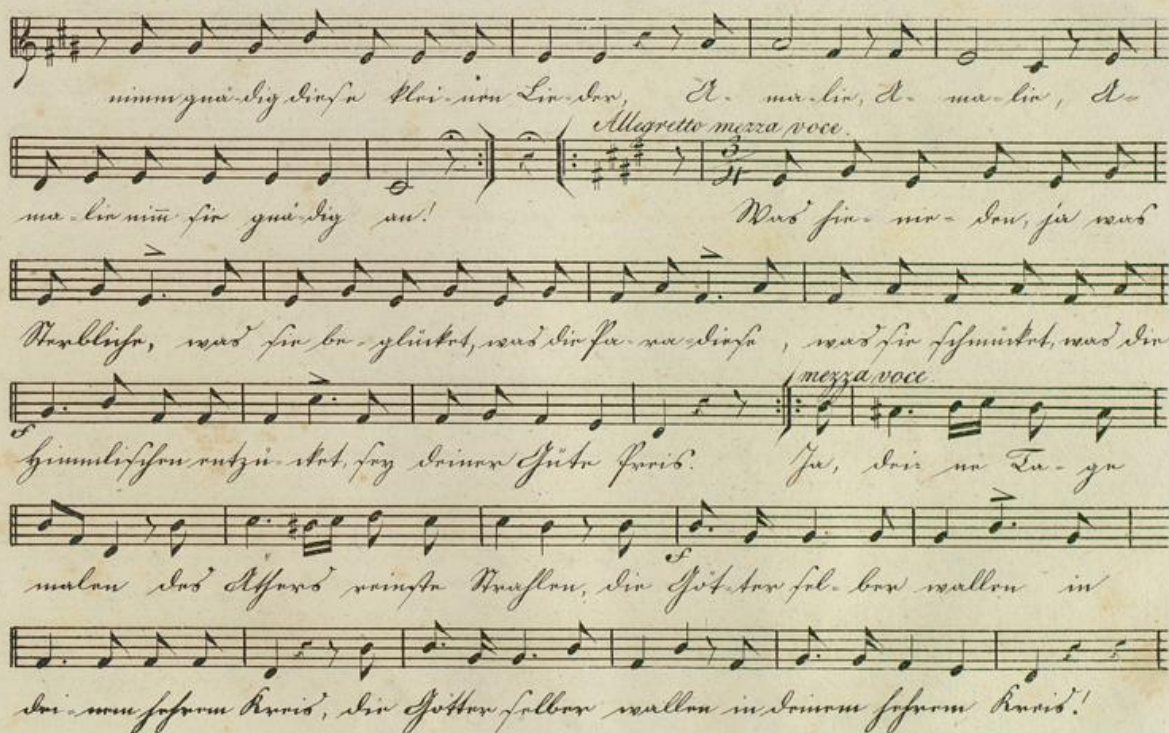 nimm gnä-dig diese klei-nen Lie-der, A-ma-lie, A-ma-lie, A-
Allegretto mezza voce.
ma-lie nim̄ sie gnä-dig an! Was hie-nie-den, ja was
Sterbliche, was sie be-glücket, was die Pa-ra-diese, was sie schmücket, was die
mezza voce.
Himmlischen entzü-cket, sey deiner Güte Preis. Ja, dei-ne Ta-ge
malen des Athers reinste Strahlen, die Göt-ter sel-ber wallen in
dei-nem hehrem Kreis, die Götter selber wallen in deinem hehrem Kreis!